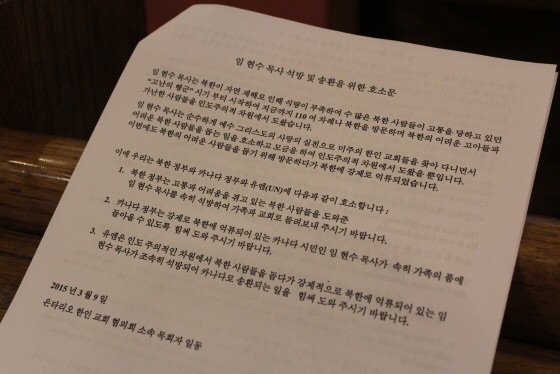 임 현수 목사 석방 및 송환을 위한 호소문
임 현수 목사는 북한이 자연 재해로 인해 식량이 부족하여 수 많은 북한 사람들이 고통을 당하고 있던
"고난의 행군" 시기 부터 시작하여 지금까지 110 여 차례나 북한을 방문하며 북한의 어려운 고아들과
가난한 사람들을 인도주의적 차원에서 도왔습니다.
임 현수 목사는 순수하게 예수 그리스도의 사랑의 실천으로 미주의 한인 교회들을 찾아 다니면서
어려운 북한 사람들을 돕는 일을 호소하고 모금을 하여 인도주의적 차원에서 도왔을 뿐입니다.
이번에도 북한의 어려운 사람들을 돕기 위해 방문하다가 북한에 강제로 억류되었습니다.
이에 우리는 북한 정부와 카나다 정부와 유엔(UN)에 다음과 같이 호소합니다 :
1. 북한 정부는 고통과 어려움을 겪고 있는 북한 사람들을 도와준
임 현수 목사를 속히 석방하여 가족과 교회로 돌려보내 주시기 바랍니다.
2. 카나다 정부는 강제로 북한에 억류되어 있는 카나다 시민인 임 현수 목사가 속히 가족의 품에
돌아올 수 있도록 힘써 도와 주시기 바랍니다.
3. 유엔은 인도 주의적인 차원에서 북한 사람들을 돕다가 강제적으로 북한에 억류되어 있는 임
현수 목사가 조속히 석방되어 카나다로 송환되는 일을 힘써 도와 주시기 바랍니다.
2015 년 3 월 9 일
온타리오 한인 교회 협의회 소속 목회자 일동